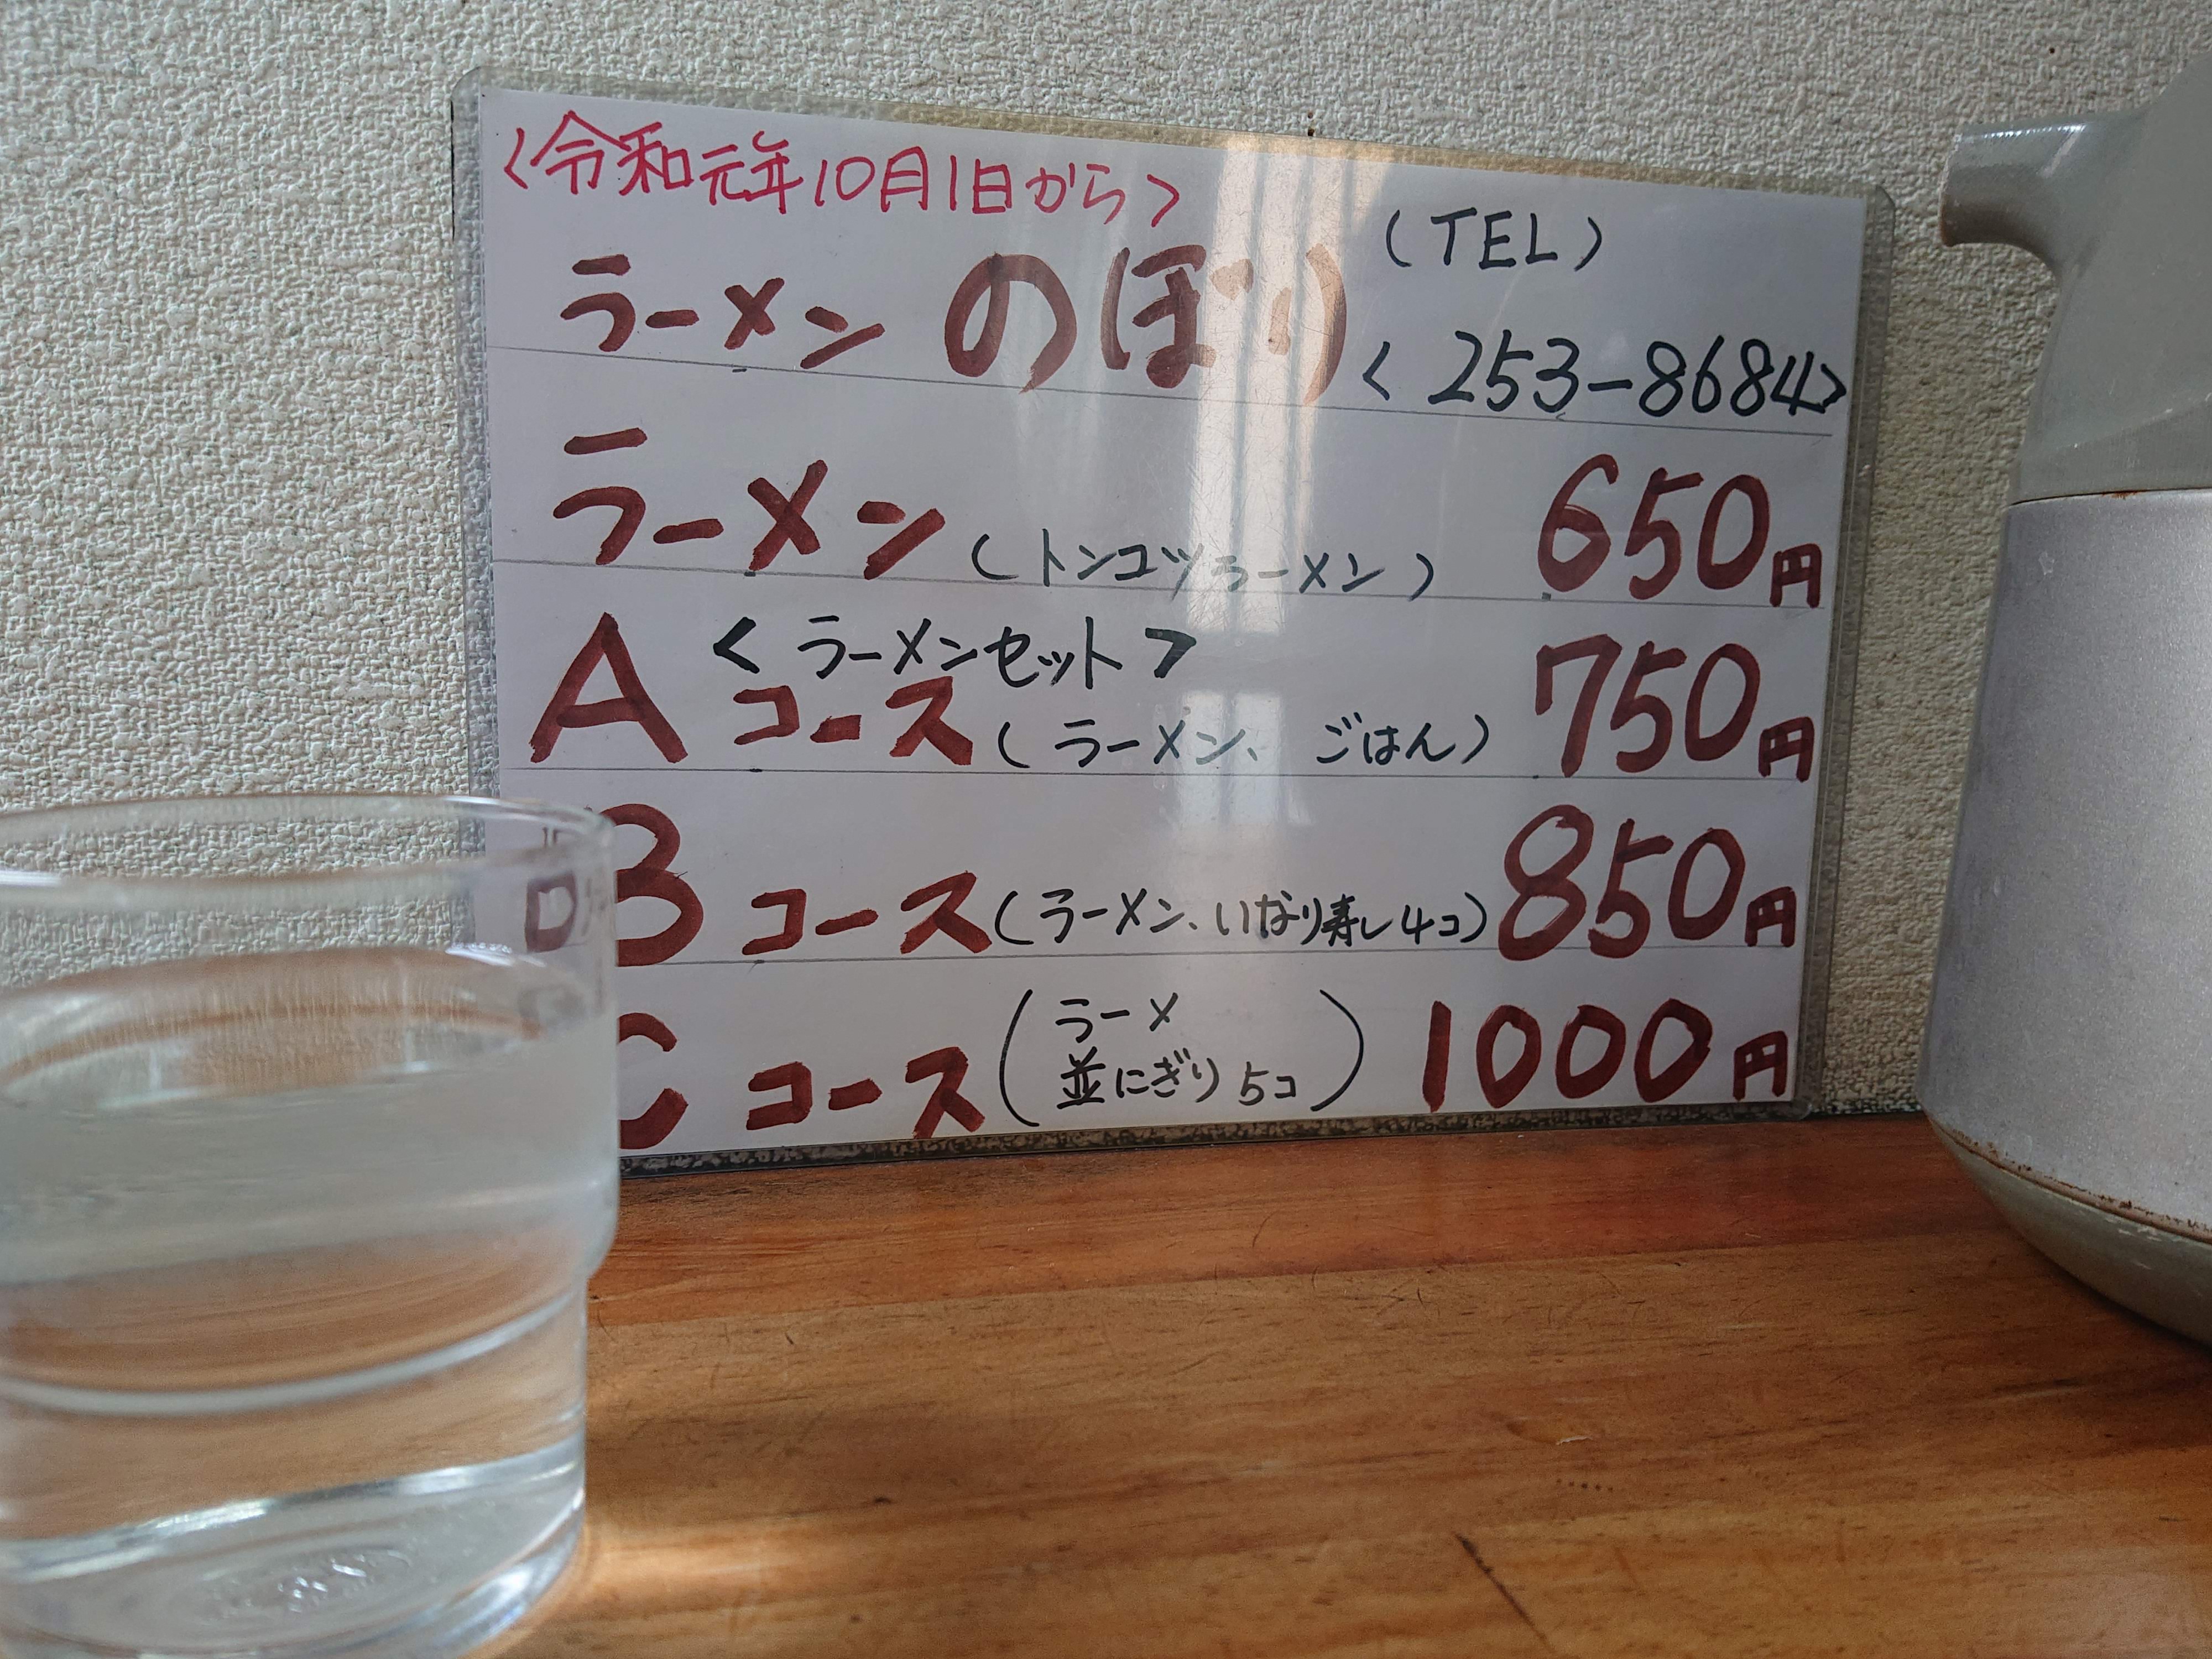 <令和元年10月1日から>
ラーメン のぼり
(TEL)
<253-8684>
ラーメン (トンコツラーメン) 650円
<ラーメンセット>
A コース (ラーメン、ごはん) 750円
B コース (ラーメン、いなり寿し4コ) 850円
C コース (ラーメ 並にぎり5コ) 1000円